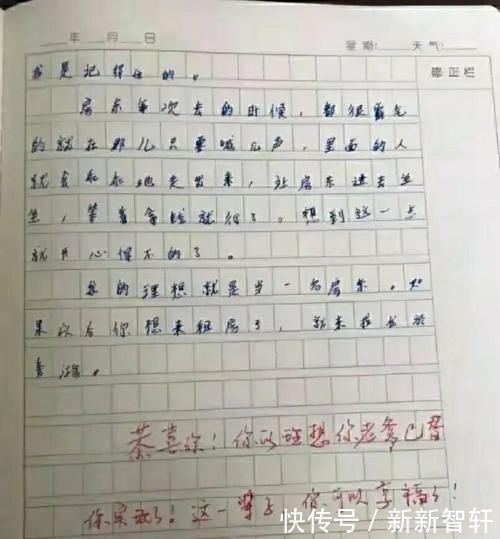 年 月 日 星期: 天气:
我是记得住的。 修正栏
房东每次去的时候,都很霸气
的就在那儿只要喊几声,里面的人
就会乖乖地走出来,让房东进去坐
坐,等着拿钱就行了。想到这一点
就开心得不的了。
我的理想就是当一名房东,如
果以后你想来租房子,就来找
香
恭喜你!你的理想你老爹已替
你实现了!这一辈子你可以享福了!
快传号/新新智轩